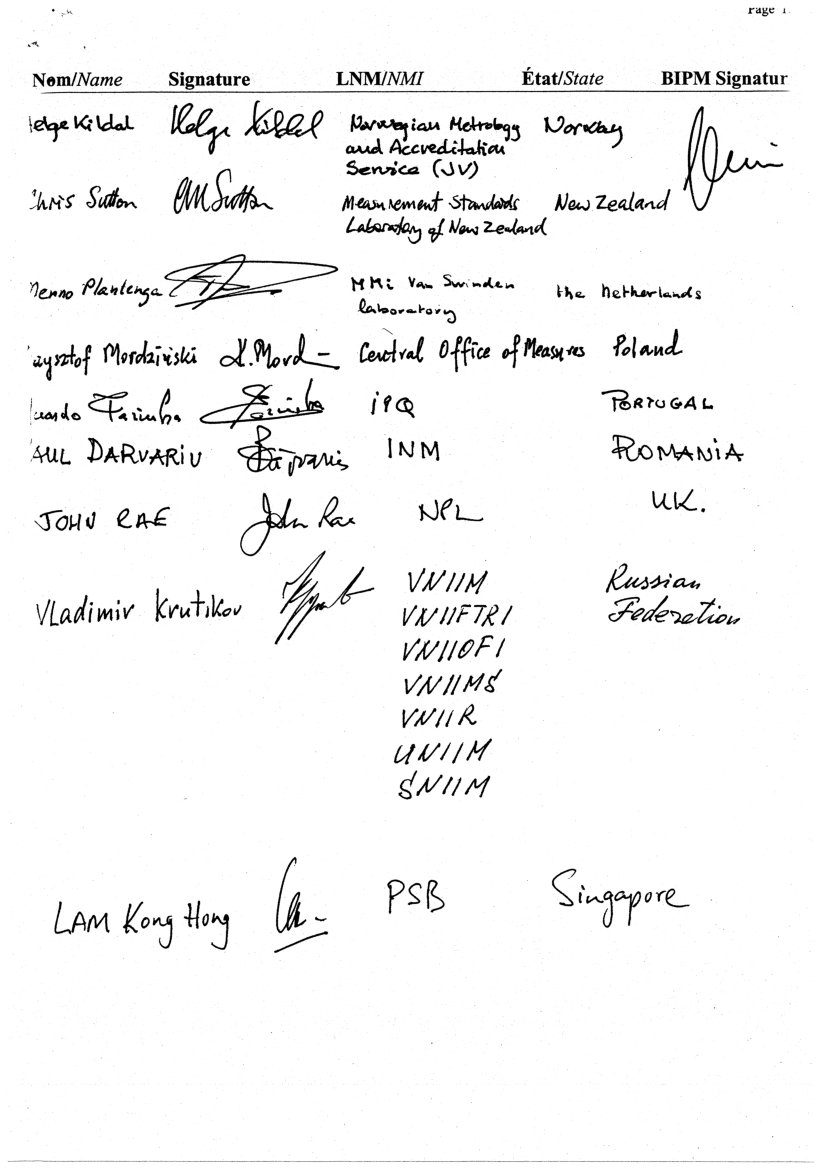 Page 1
Nom/Name Signature LNM/NMI État/State BIPM Signatur
elge Kildal Helge Kildal Norwegian Metrology Norway
and Accreditation
Service (JV)
hris Sutton CM Sutton Measurement Standards New Zealand
Laboratory of New Zealand
enno Plantenga NMi Van Swinden the Netherlands
laboratory
zysztof Mordziński K. Mord Central Office of Measures Poland
uardo Farinha Farinha IPQ PORTUGAL
AUL DARVARIU INM ROMANIA
JOHN RAE John Rae NPL UK.
Vladimir Krutikov VNIIM Russian
VNIIFTRI Federation
VNIIOFI
VNIIMS
VNIIR
UNIIM
SNIIM
LAM Kong Hong PSB Singapore